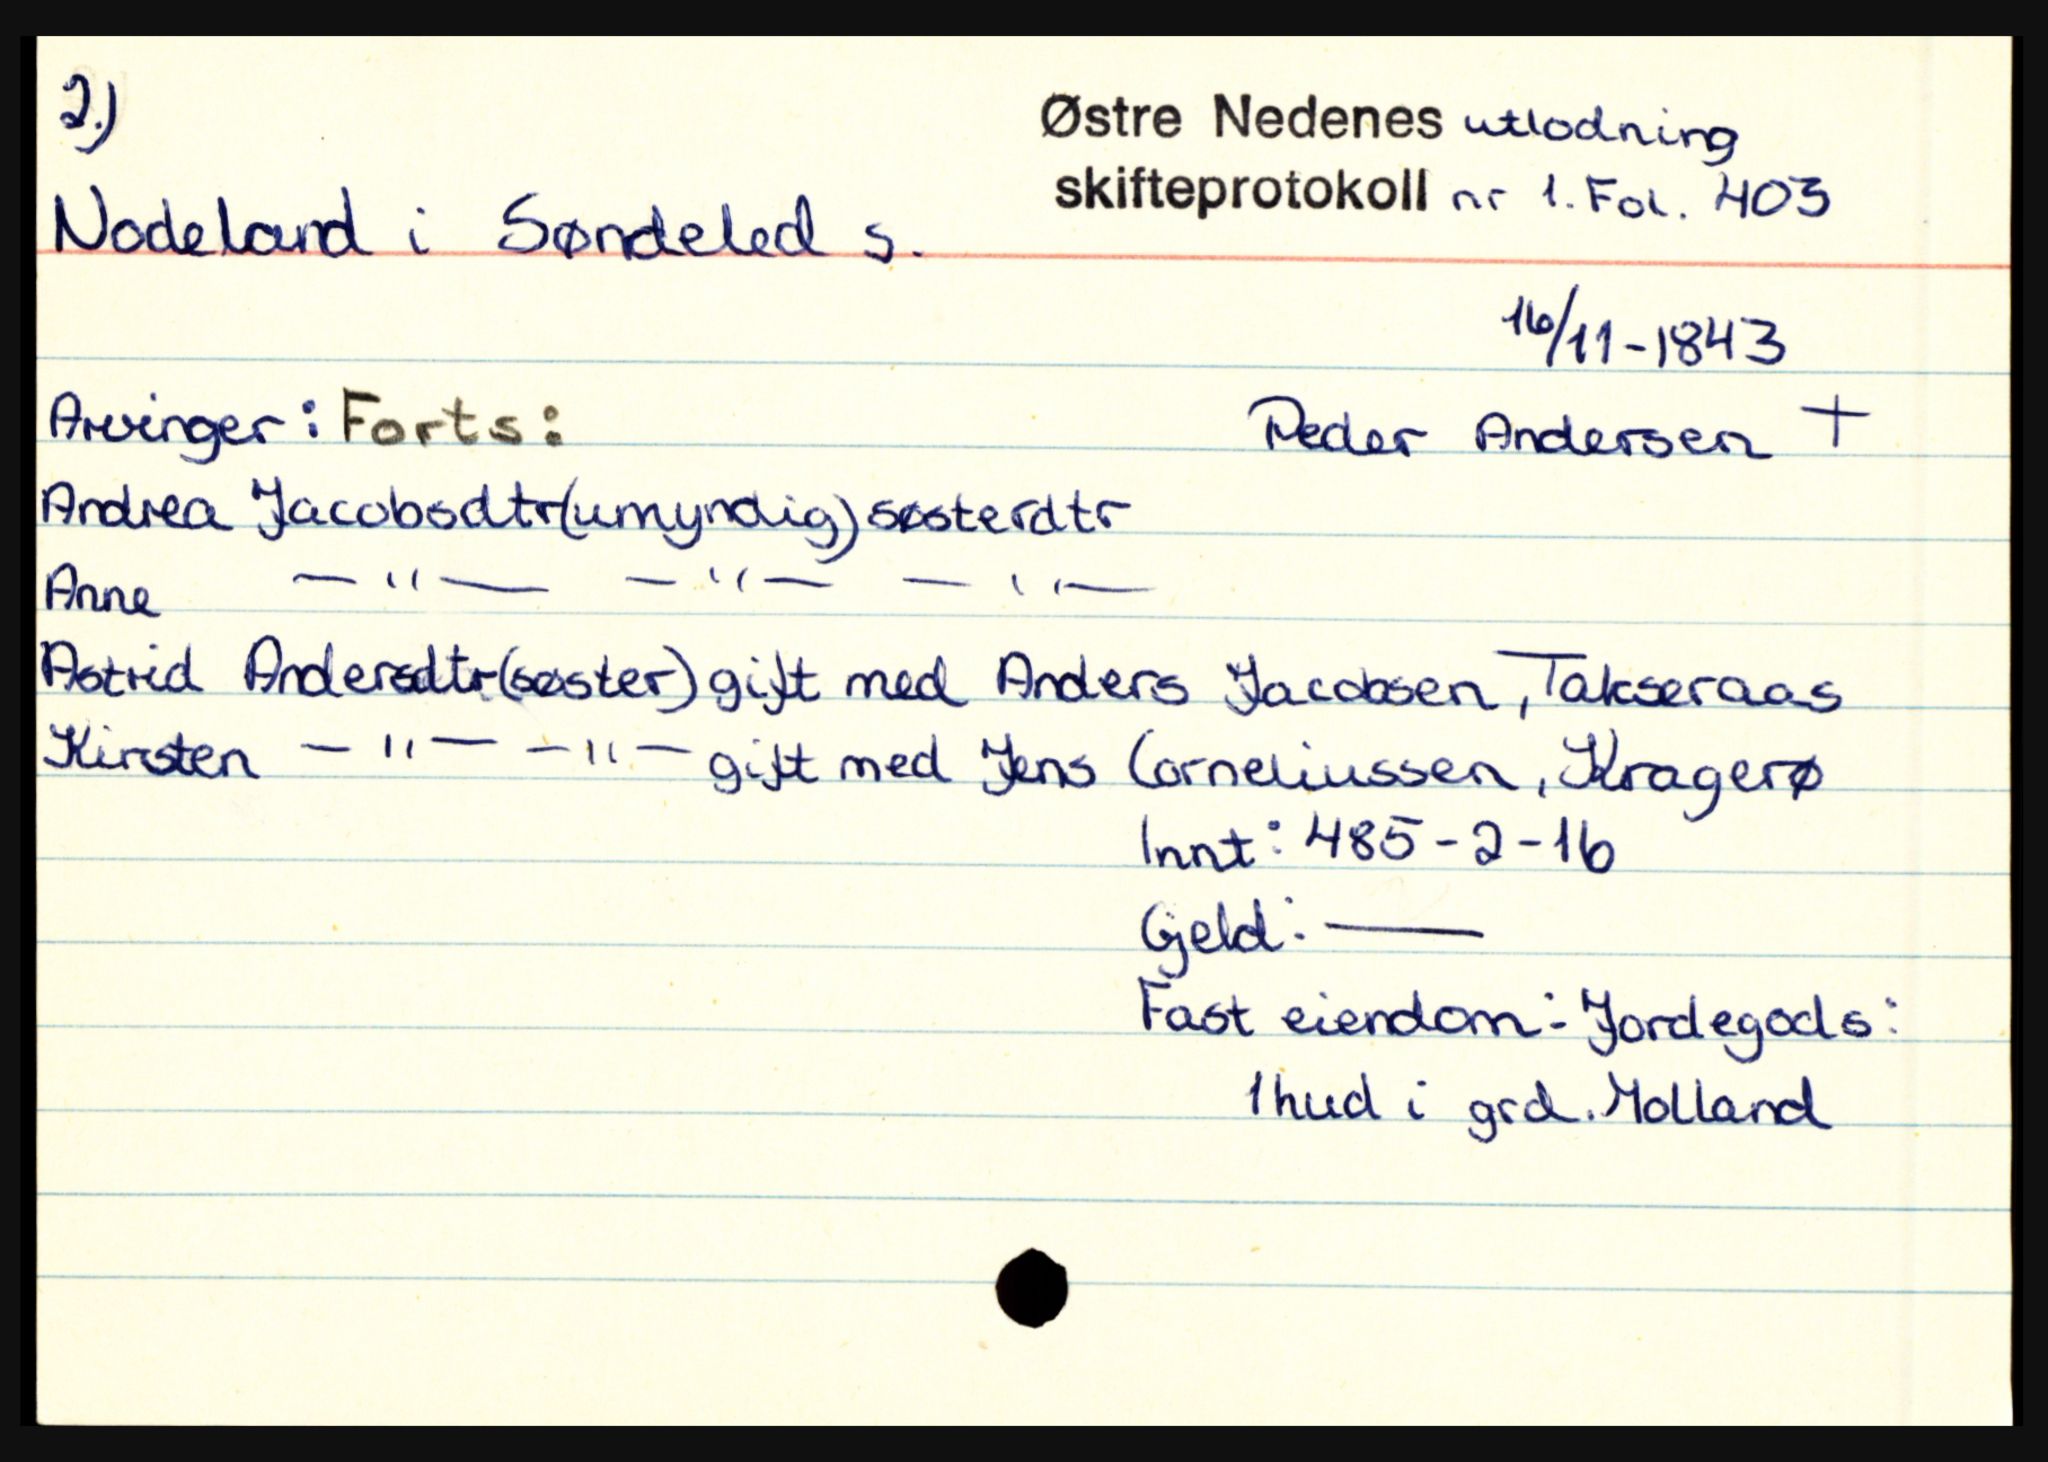 2.)
Østre Nedenes utlodning
skifteprotokoll nr 1. Fol. 403
Nodeland i Søndeled s.
16/11-1843
Arvinger: Forts:
Peder Andersen +
Andrea Jacobsdtr (umyndig) søsterdtr
Anne — " — — " — — " —
Astrid Andersdtr (søster) gift med Anders Jacobsen, Takseraas
Kirsten — " — — " — gift med Jens Corneliussen, Kragerø
Innt: 485-2-16
Gjeld: —
Fast eiendom: Jordegods:
1 hud i grd. Holland